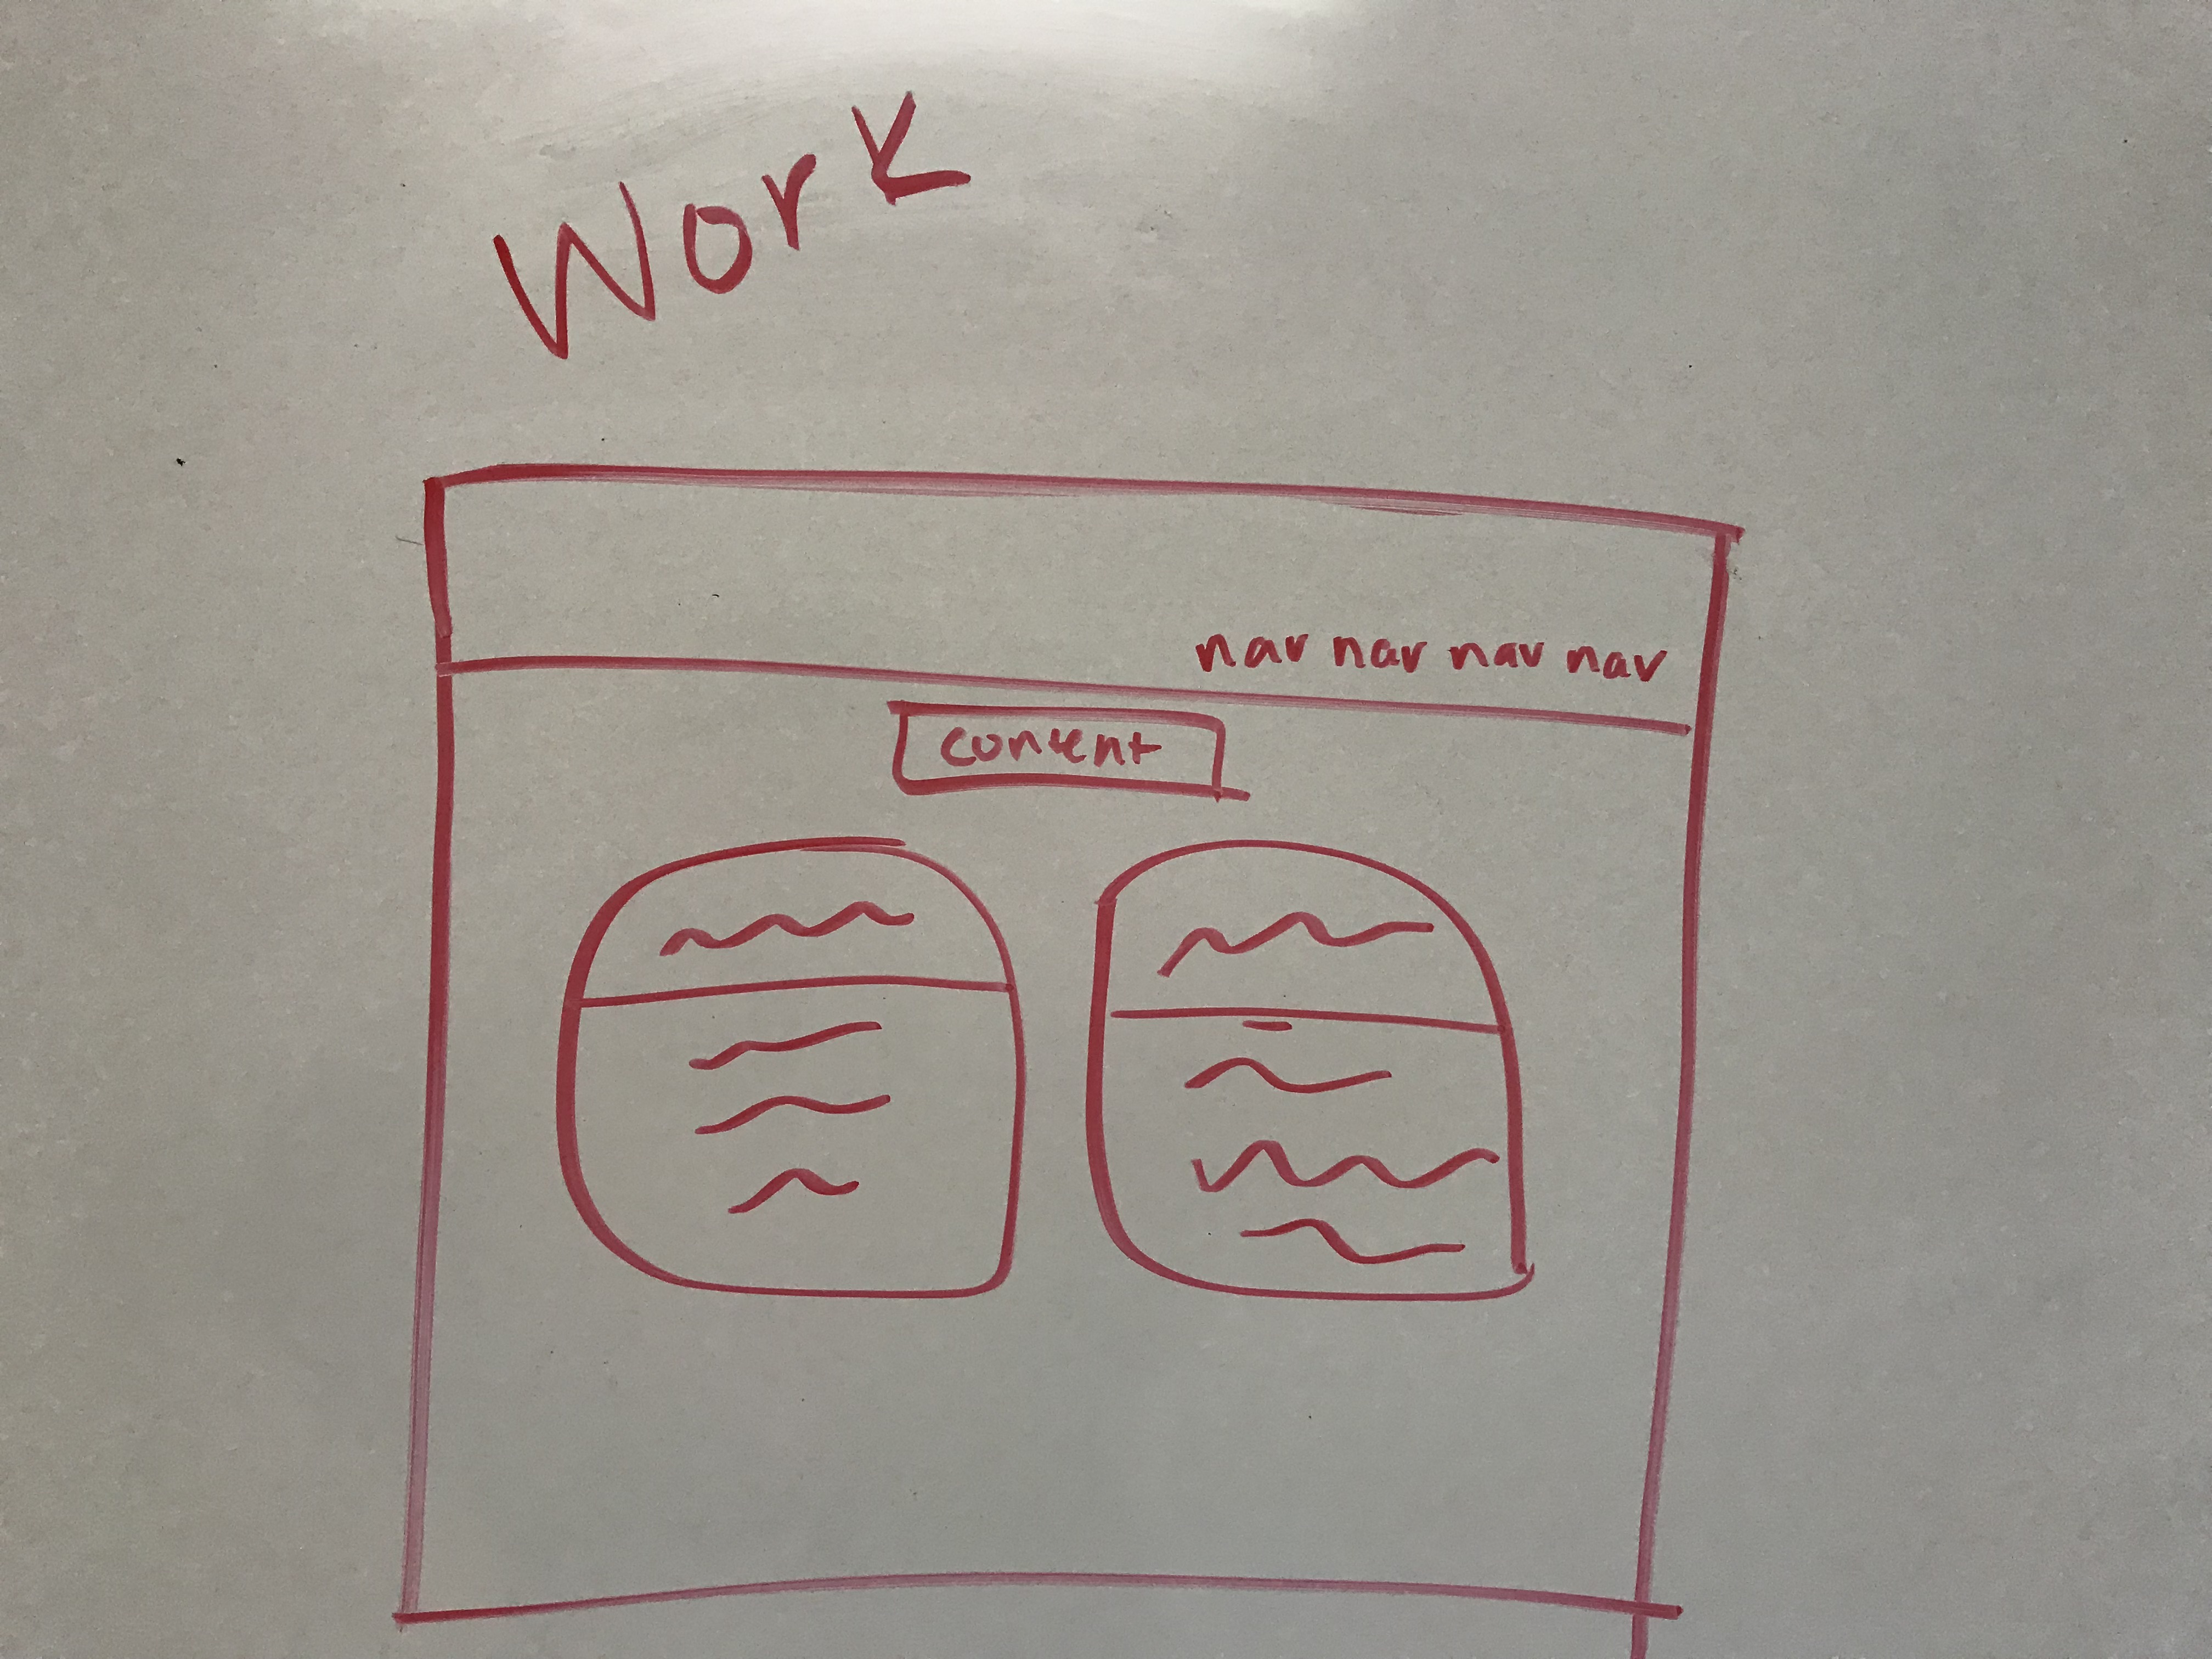 Work
nav nav nav nav
content